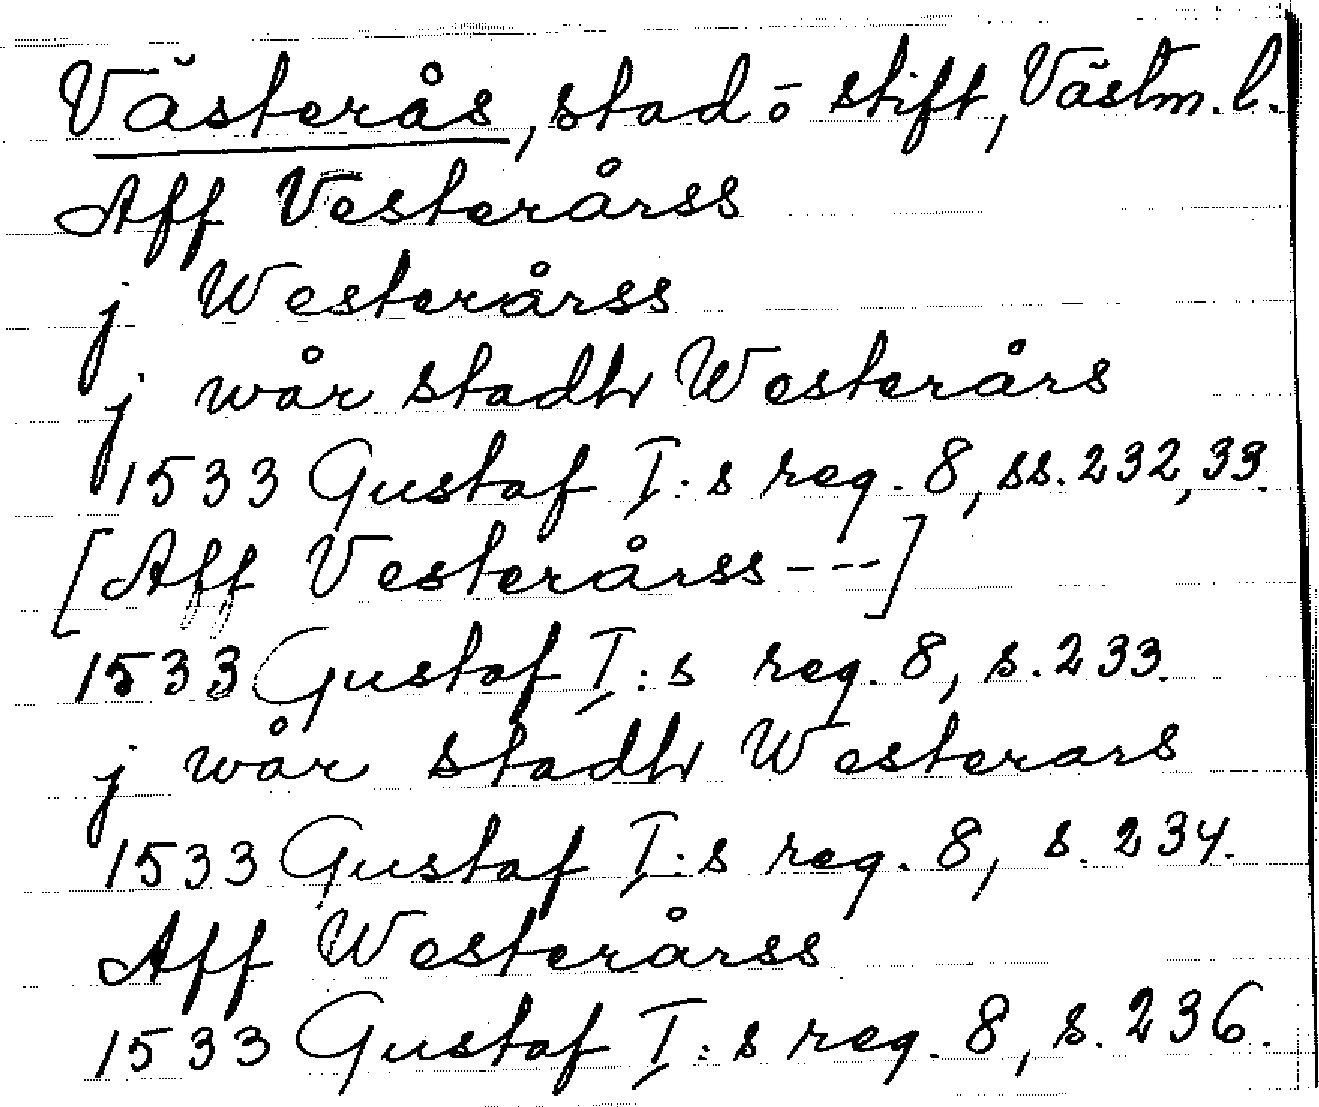 Västerås, stad o stift, Västm. l.
Aff Vesterårss
j Westerårss
j wår stadh Westerårs
1533 Gustaf I:s reg. 8, ss. 232, 33.
[Aff Vesterårss---]
1533 Gustaf I:s reg. 8, s. 233.
j wår stadh Westerars
1533 Gustaf I:s reg. 8, s. 234.
Aff Westerårss
1533 Gustaf I:s reg. 8, s. 236.